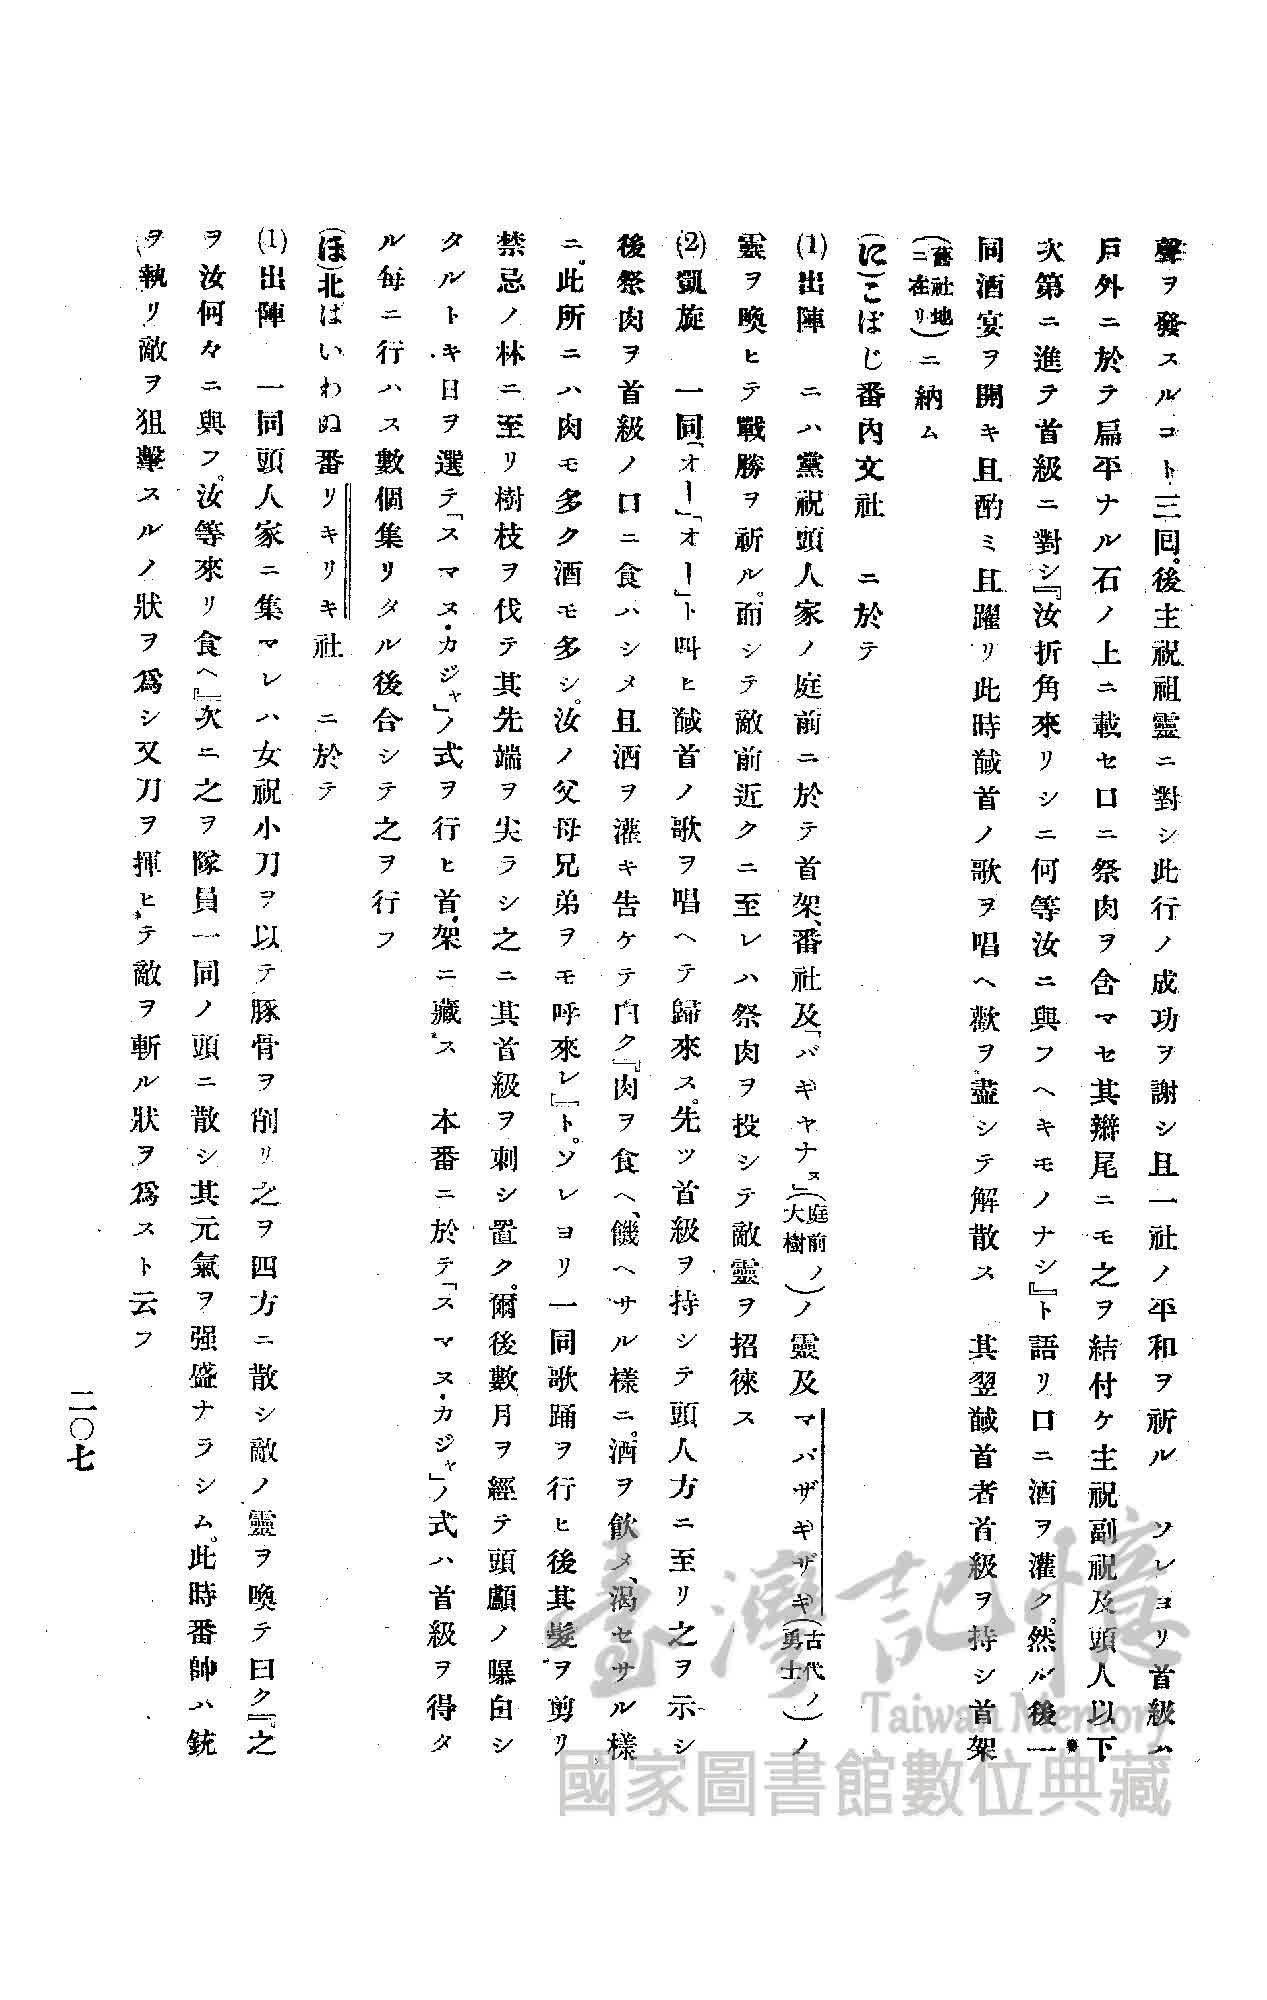 聲ヲ發スルコト三回。後主祝祖靈ニ對シ此行ノ成功ヲ謝シ且一社ノ平和ヲ祈ル　ソレヨリ首級ハ
戶外ニ於テ扁平ナル石ノ上ニ載セ口ニ祭肉ヲ含マセ其辮尾ニモ之ヲ結付ケ主祝副祝及頭人以下
次第ニ進テ首級ニ對シ『汝折角來リシニ何等汝ニ與フヘキモノナシ』ト語リ口ニ酒ヲ灌ク。然ル後一
同酒宴ヲ開キ且酌ミ且躍リ此時馘首ノ歌ヲ唱ヘ歡ヲ盡シテ解散ス　其翌馘首者首級ヲ持シ首架
(舊社地ニ在リ)ニ納ム
(に)こぼじ番內文社　ニ於テ
(1)出陣　ニハ黨祝頭人家ノ庭前ニ於テ首架、番社及「バギヤナヌ」(庭前ノ大樹)ノ靈及マバザギザギ(古代ノ勇士)ノ
靈ヲ喚ヒテ戰勝ヲ祈ル。而シテ敵前近クニ至レハ祭肉ヲ投シテ敵靈ヲ招徠ス
(2)凱旋　一同「オー」「オー」ト叫ヒ馘首ノ歌ヲ唱ヘテ歸來ス。先ツ首級ヲ持シテ頭人方ニ至リ之ヲ示シ
後祭肉ヲ首級ノ口ニ食ハシメ且酒ヲ灌キ告ケテ曰ク『肉ヲ食ヘ、饑ヘサル樣ニ。酒ヲ飮メ、渴セサル樣
ニ。此所ニハ肉モ多ク酒モ多シ。汝ノ父母兄弟ヲモ呼來レ』ト。ソレヨリ一同歌踊ヲ行ヒ後其髮ヲ剪リ
禁忌ノ林ニ至リ樹枝ヲ伐テ其先端ヲ尖ラシ之ニ其首級ヲ刺シ置ク。爾後數月ヲ經テ頭顱ノ曝白シ
タルトキ日ヲ選テ「スマヌ・カジャ」ノ式ヲ行ヒ首架ニ藏ス　本番ニ於テ「スマヌ・カジャ」ノ式ハ首級ヲ得タ
ル每ニ行ハス數個集リタル後合シテ之ヲ行フ
(ほ)北ぱいわぬ番リキリキ社　ニ於テ
(1)出陣　一同頭人家ニ集マレハ女祝小刀ヲ以テ豚骨ヲ削リ之ヲ四方ニ散シ敵ノ靈ヲ喚テ曰ク『之
ヲ汝何々ニ與フ。汝等來リ食ヘ』次ニ之ヲ隊員一同ノ頭ニ散シ其元氣ヲ强盛ナラシム。此時番帥ハ銃
ヲ執リ敵ヲ狙擊スルノ狀ヲ爲シ又刀ヲ揮ヒテ敵ヲ斬ル狀ヲ爲スト云フ
二〇七
臺灣記憶
Taiwan Memory
國家圖書館數位典藏